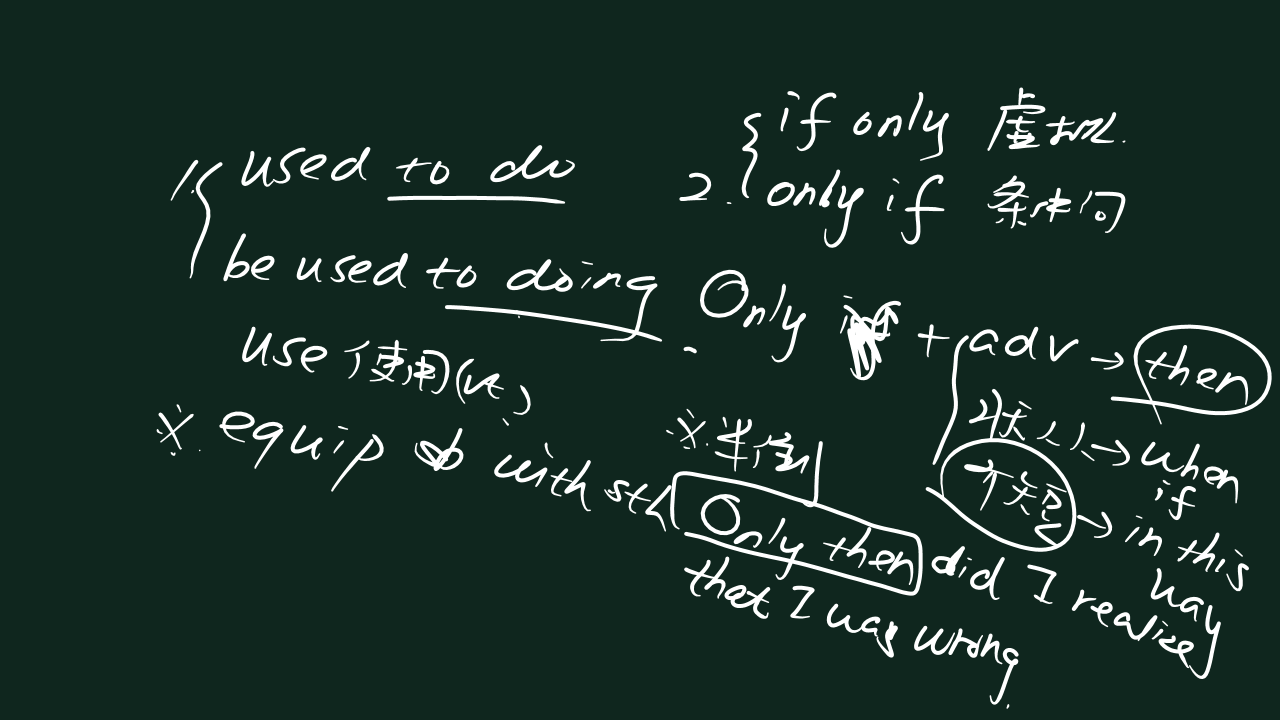 1. used to do
be used to doing.
use 使用(vt.)
※ equip with sth
2. if only 虚拟.
only if 条件句
Only + adv → then
状从 → when
if
介短 → in this
way
※ 半倒
Only then did I realize
that I was wrong.